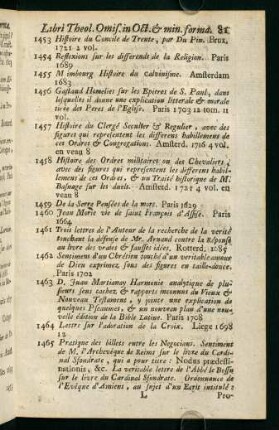 Libri Theol. Omiss. in Oct. & min. forma. 81
1453 Histoire du Concile de Trente, par Du Pin. Brux.
1721 2 vol.
1454 Reflexions sur les differends de la Religion. Paris
1689
1455 Maimbourg Histoire du Calvinisme. Amsterdam
1683
1456 Gastaud Homelies sur les Epitres de S. Paul, dans
lesquelles il donne une explication litterale & morale
tirée des Peres de l'Eglise. Paris 1703 12 tom. 11
vol.
1457 Histoire du Clergé Seculier & Regulier, avec des
figures qui representent les differens habillemens de
ces Ordres & Congregations. Amsterd. 1716 4 vol.
en veau 8
1458 Histoire des Ordres militaires ou des Chevaliers,
avec des figures qui representent les differens habil-
lemens de ces Ordres, & un Traité historique de M.
Basnage sur les duels. Amsterd. 1721 4 vol. en
veau 8
1459 De la Serre Pensées de la mort. Paris 1629
1460 Jean Marie vie de saint François d'Assise. Paris
1664
1461 Trois lettres de l'Auteur de la recherche de la verité
touchant la défense de Mr. Arnaud contre la Réponse
au livre des vrayes & fausses idées. Rotterd. 1685
1462 Sentimens d'un Chrétien touché d'un veritable amour
de Dieu exprimez sous des figures en taille-douce.
Paris 1702
1463 D. Juan Martianay Harmonie analytique de plu-
sieurs sens cachez, & rapports inconnus du Vieux &
Nouveau Testament, y jointe une explication de
quelques Pseaumes, & un nouveau plan d'une nou-
velle édition de la Bible Latine. Paris 1708
1464 Lettre sur l'adoration de la Croix. Liege 1698
12
1465 Pratique des billets entre les Negocians. Sentiment
de M. l'Archevêque de Reims sur le livre du Cardi-
nal Sfondrate, qui a pour titre: Nodus prædesti-
nationis, &c. La veritable lettre de l'Abbé le Bossu
sur le livre du Cardinal Sfondrate. Ordonnance de
l'Evêque d'Amiens, au sujet d'un Ecrit intitulé:
L Pro-